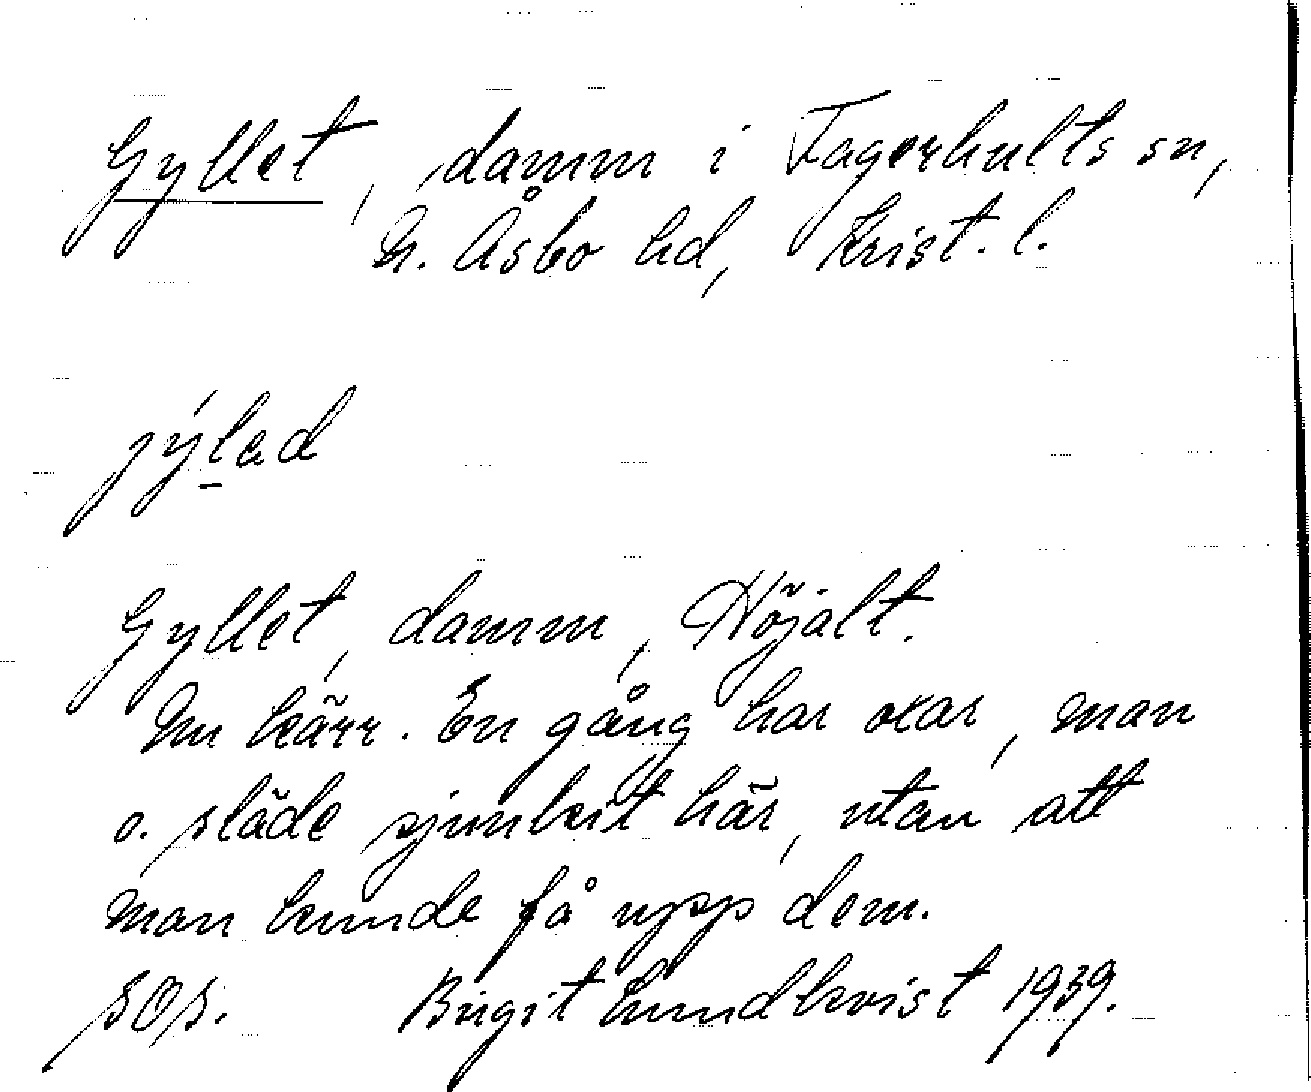 Gyllet, damm i Fagerhults sn,
N. Åsbo hd, Krist. l.
jýlad
Gyllet, damm, Höjalt.
Nu kärr. En gång har oxar, man
o. släde sjunkit här, utan att
man kunde få upp dem.
sOs. Birgit Lundkvist 1939.